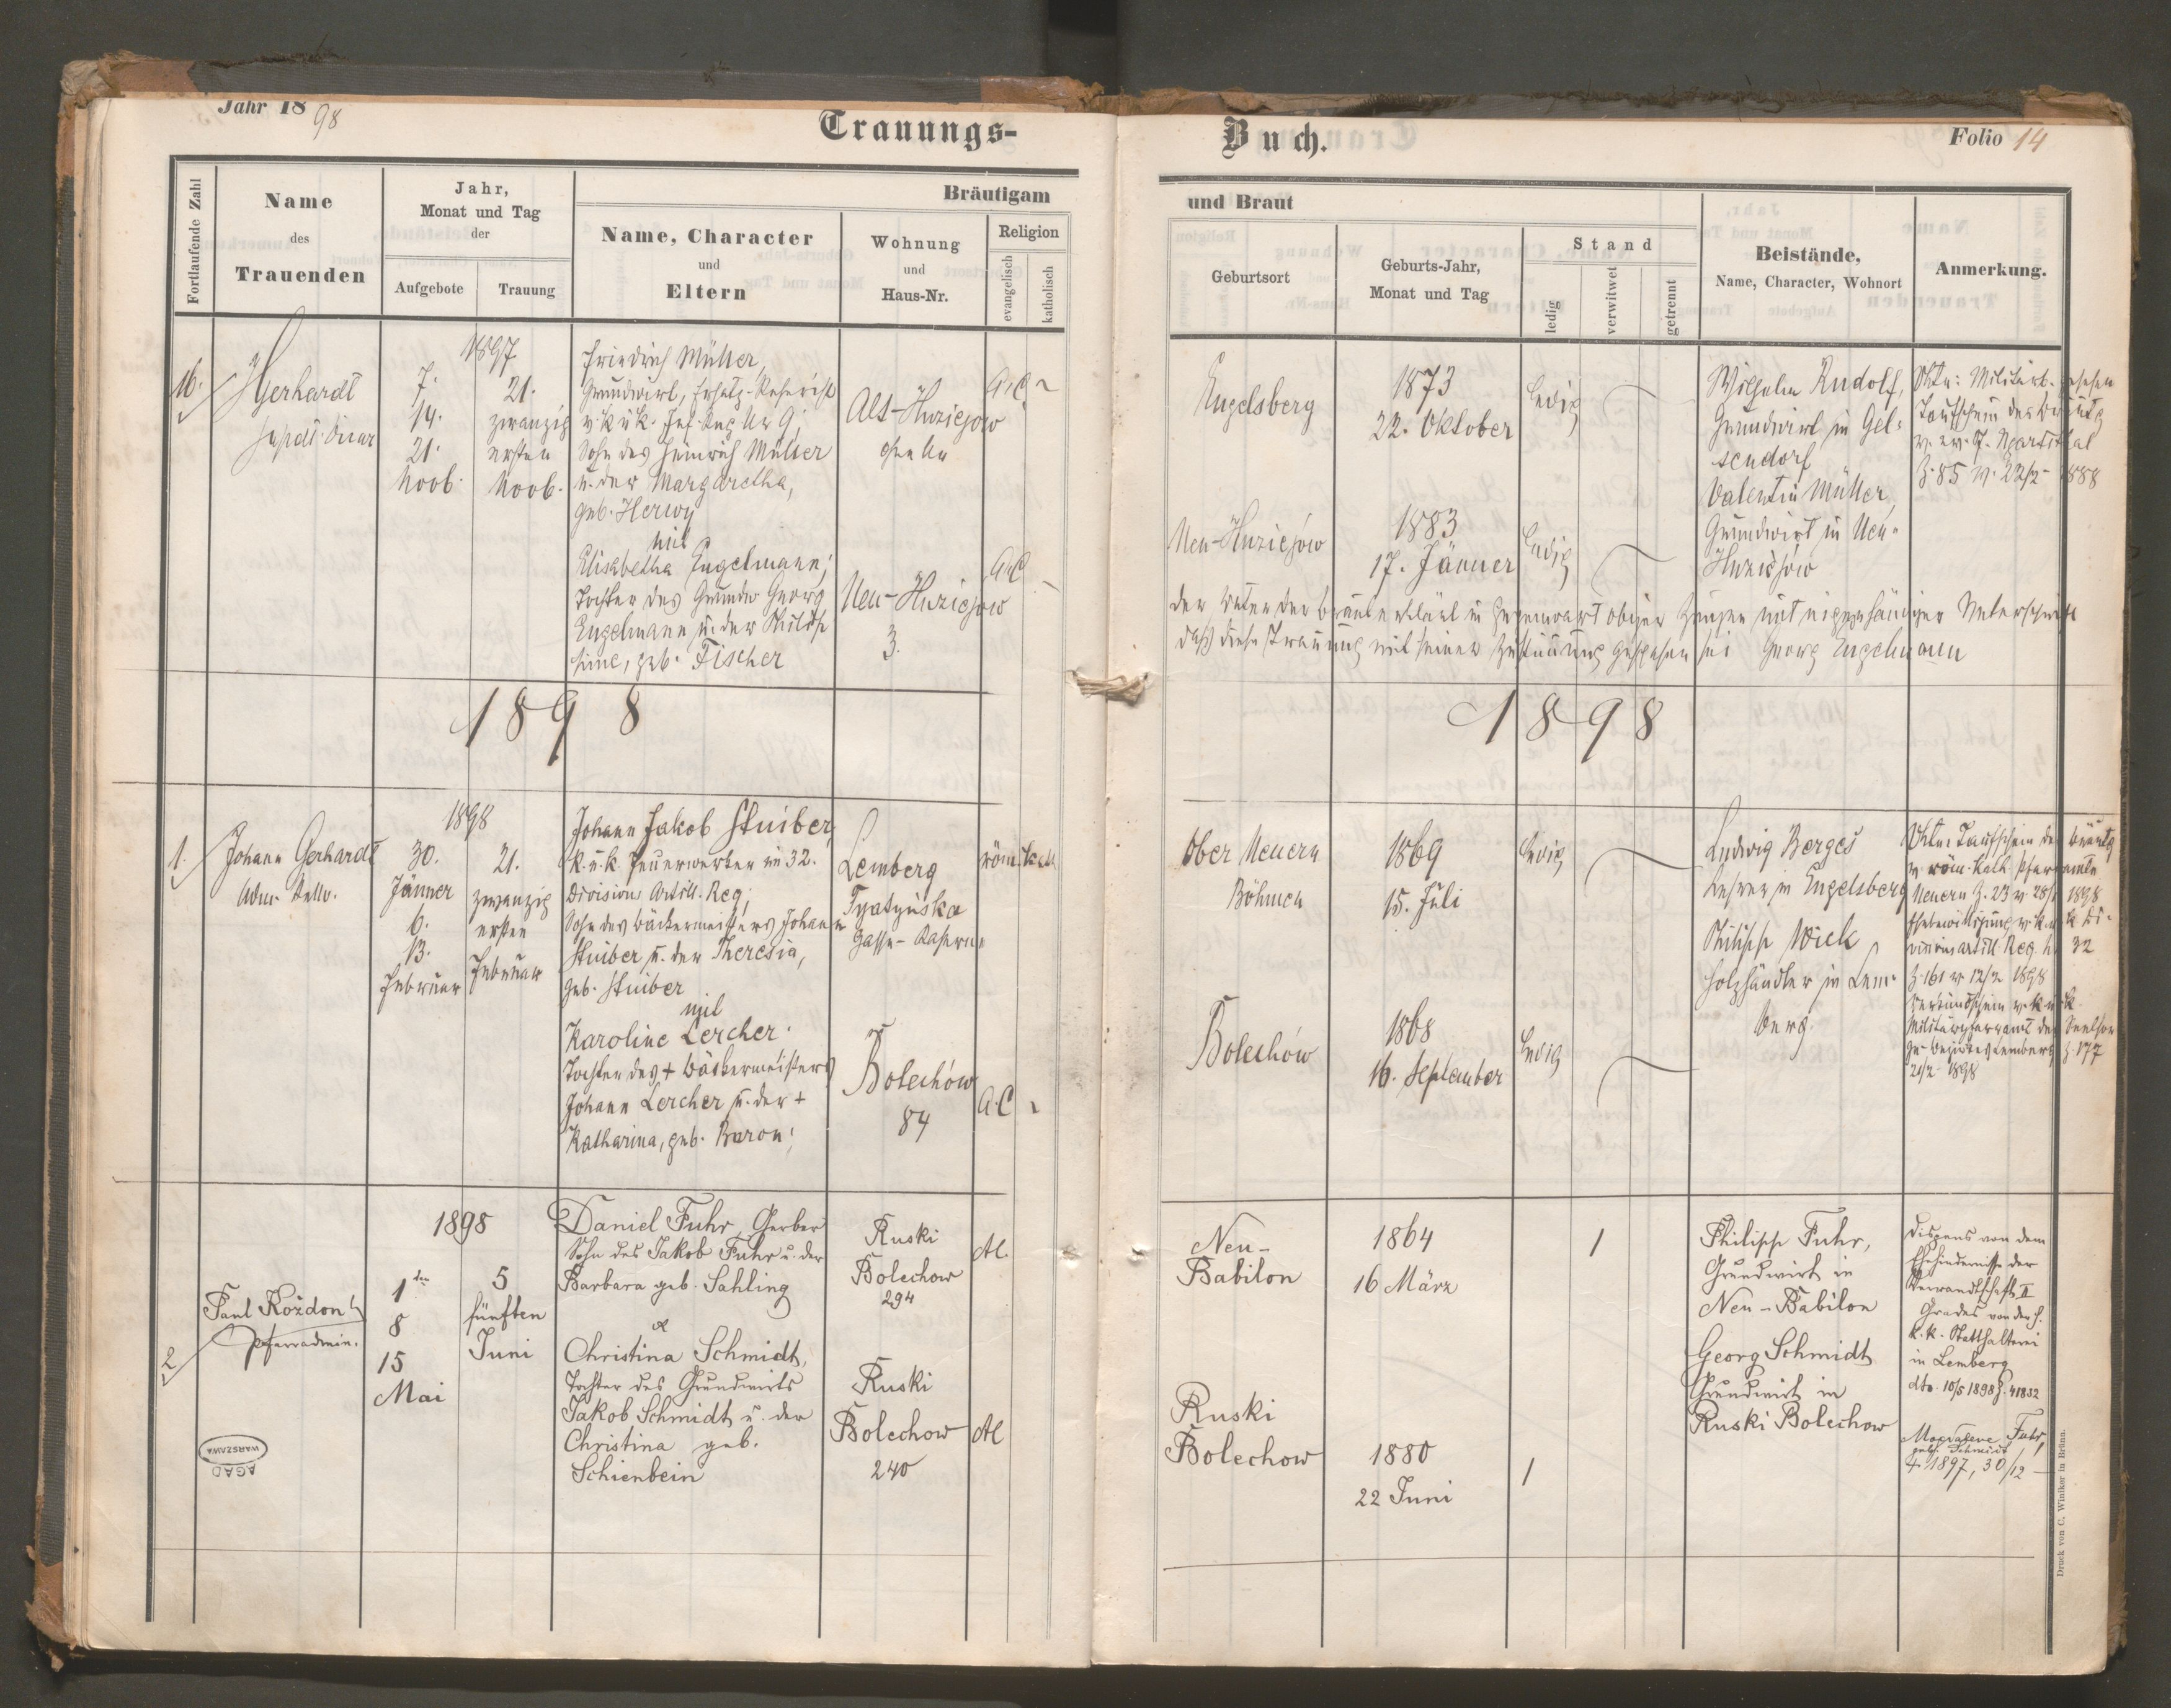 Jahr 1898
Trauungs-
Buch.
Folio 14
Fortlaufende Zahl
Name
des
Trauenden
Jahr,
Monat und Tag
der
Aufgebote
Trauung
Bräutigam
Name, Character
und
Eltern
Wohnung
und
Haus-Nr.
Religion
evangelisch
katholisch
und Braut
Geburtsort
Geburts-Jahr,
Monat und Tag
Stand
ledig
verwitwet
getrennt
Beistände,
Name, Character, Wohnort
Anmerkung.
16.
Gerhardt
1897
7.
14.
21.
Novb.
21.
zwanzig
ersten
Novb.
Friedrich Müller,
Grundwirt, Ersatz-Reservist
v. k. u. k. Inf. Reg. Nr 9,
Sohn des Heinrich Müller
u. der Margaretha,
geb. Herwy
mit
Elisabetha Engelmann,
Tochter des Grundw Georg
Engelmann u. der Philip
pine, geb. Fischer
Alt-Huziejow
ohne Nr
A.C.
Neu-Huziejow
3.
A.C
Engelsberg
1873
22. Oktober
ledig
Neu-Huziejów
1883
17. Jänner
ledig
Wilhelm Rudolf,
Grundwirt in Gel-
sendorf
Valentin Müller,
Grundwirt in Neu-
Huziejów
Taufschein des
Z. 85 v. 22/2 1888
Der Vater der Braut erklärt in Gegenwart obiger Zeugen mit eigenhändiger Unterschrift
daß diese Trauung mit seiner Zustimmung geschehen sei Georg Engelmann
1898
1898
1.
Johann Gerhardt
1898
30.
Jänner
6.
13.
Februar
21.
zwanzig
ersten
Februar
Johann Jakob Stuiber,
k. u. k. Feuerwerker im 32.
Division Artill. Reg,
Sohn des Bäckermeisters Johann
Stuiber u. der Theresia,
geb. Stuiber
mit
Karoline Lercher
Tochter des + Bäckermeisters
Johann Lercher u. der +
Katharina, geb. Baron;
Lemberg
Gasse-Kaserne
röm. kath
Bolechów
84
A.C
Ober Neuern
Böhmen
1869
15. Juli
ledig
Bolechów
1868
16. September
ledig
Ludwig Berges
Lehrer in Engelsberg
Philipp Wick
Holzhändler in Lem-
berg.
Taufschein des Bräutg
v. röm. kath. Pfarramte
Neuern Z. 23 v. 28/1 1898
Z. 161 v. 12/2 1898
Z. 177
21/2 1898
2
Paul Kożdoń
Pfarradmin.
1898
1ten
8
15
Mai
5
fünften
Juni
Daniel Fuhr, Gerber
Sohn des Jakob Fuhr u. der
Barbara geb. Sahling
&
Christina Schmidt,
Tochter des Grundwirts
Jakob Schmidt u. der
Christina geb.
Schienbein
Ruski
Bolechow
294
AC.
Ruski
Bolechow
240
AC
Neu-
Babilon
1864
16 März
1
Ruski
Bolechow
1880
22 Juni
1
Philipp Fuhr,
Grundwirt in
Neu-Babilon
Georg Schmidt
Grundwirt in
Ruski Bolechow
Dispens von dem
Ehehindernisse der
Verwandtschaft II
Grades von der h.
k. k. Statthalterei
in Lemberg
dto. 10/5 1898 Z. 41832
Fuhr,
geb. Schmidt
+ 1897, 30/12
WARSZAWA
AGAD
Druck von C. Winiker in Brünn.